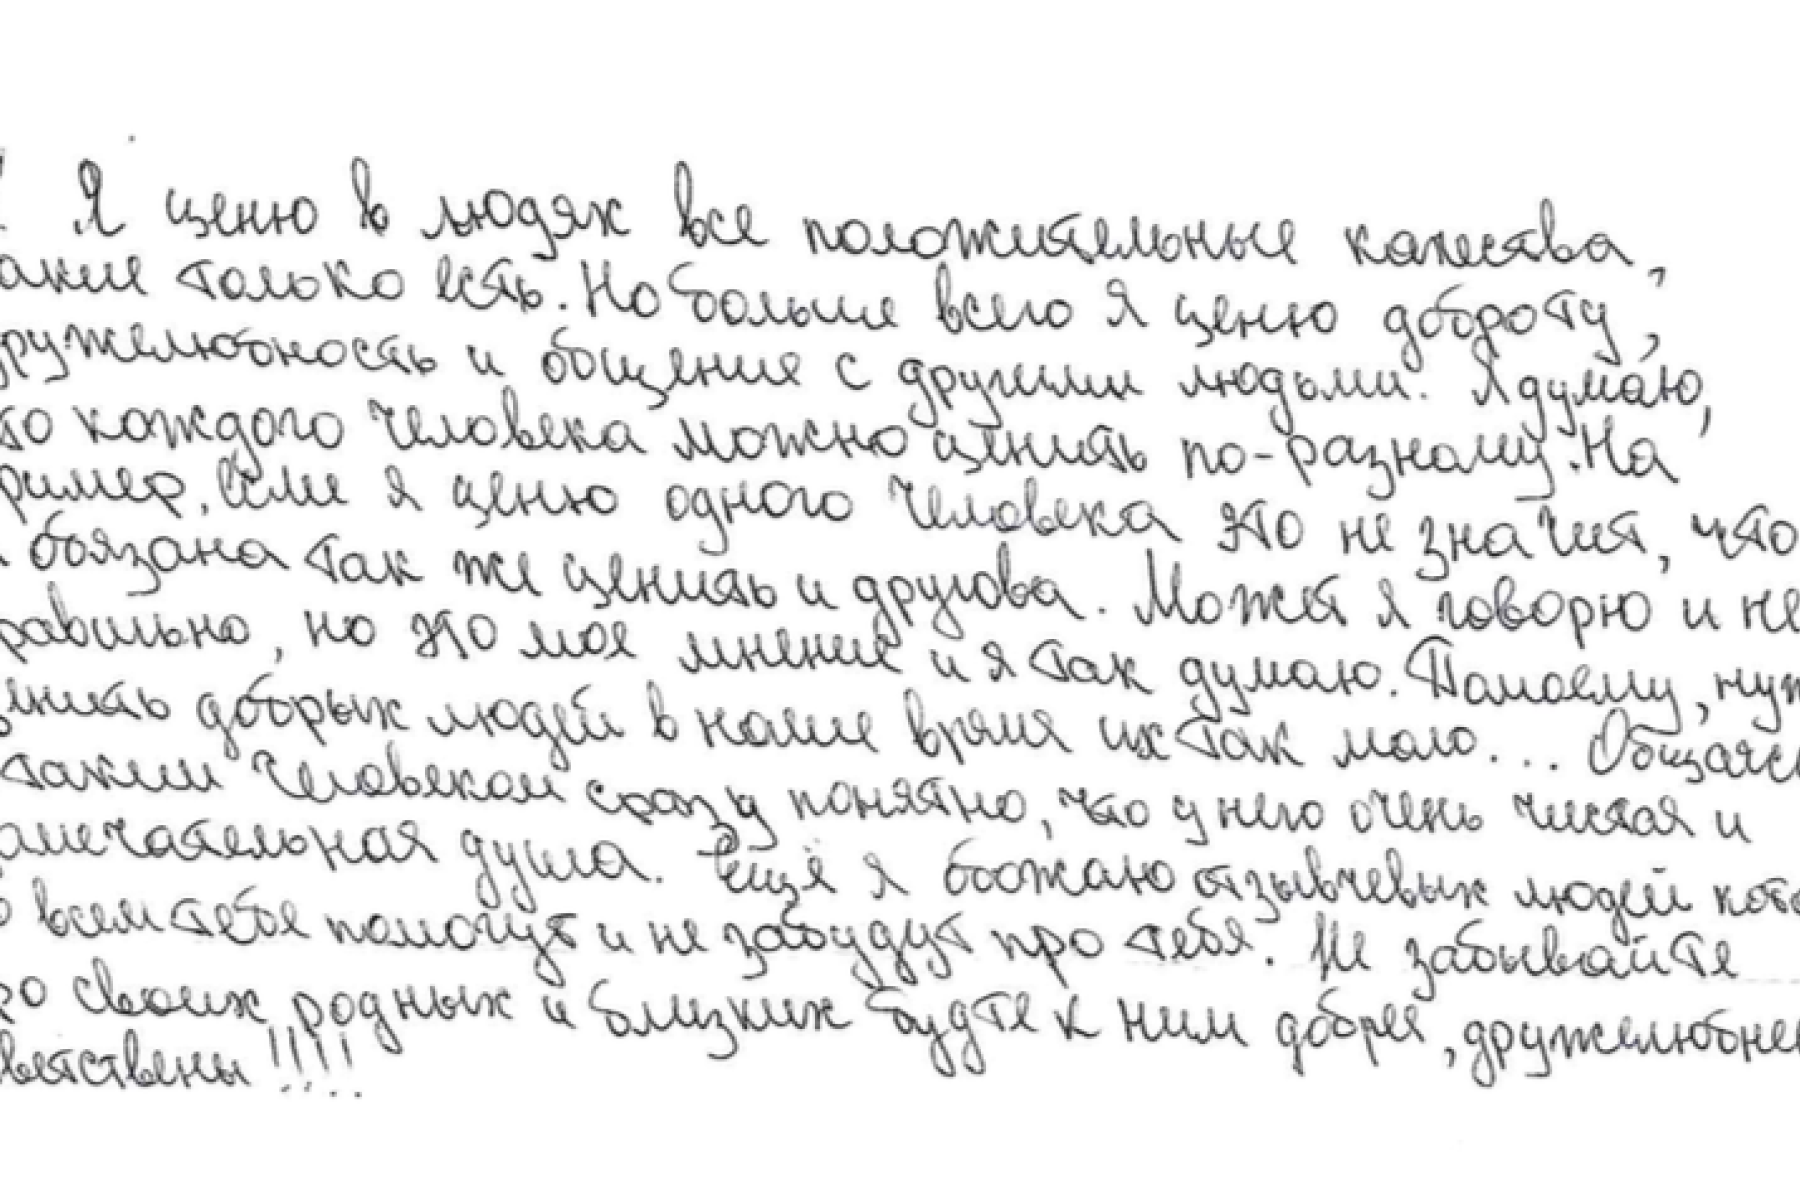 Я ценю в людях все положительные качества,
акие только есть. Но больше всего я ценю доброту,
дружелюбность и общение с другими людьми. Я думаю,
то каждого человека можно ценить по-разному. На
ример, если я ценю одного человека это не значит, что
обязана так же ценить и другова. Может я говорю и не
равильно, но это мое мнение и я так думаю. Помоему, нуж
енить добрых людей в наше время их так мало... Общаясь
таким человеком сразу понятно, что у него очень чистая и
амечательная душа. Ещё я обожаю отзывчевых людей кото
о всем тебе помогут и не забудут про тебя. Не забывайте
ро своих родных и близких будте к ним добрее, дружелюбнее
ветствены!!!!